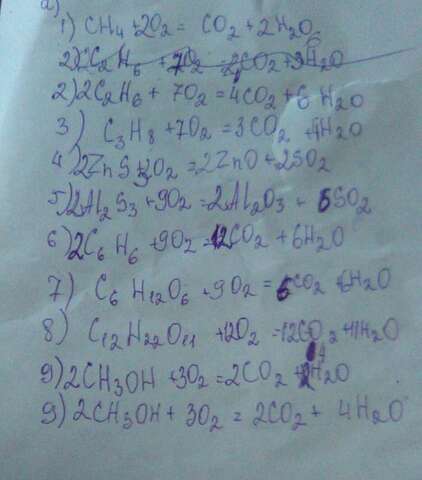 а)
1) CH4 + 2O2 = CO2 + 2H2O
2) 2C2H6 + 7O2 = 4CO2 + 6H2O
3) C3H8 + 7O2 = 3CO2 + 4H2O
4) 2ZnS + 3O2 = 2ZnO + 2SO2
5) 2Al2S3 + 9O2 = 2Al2O3 + 6SO2
6) 2C6H6 + 9O2 = 12CO2 + 6H2O
7) C6H12O6 + 9O2 = 6CO2 + 6H2O
8) C12H22O11 + 12O2 = 12CO2 + 11H2O
9) 2CH3OH + 3O2 = 2CO2 + 4H2O
9) 2CH3OH + 3O2 = 2CO2 + 4H2O